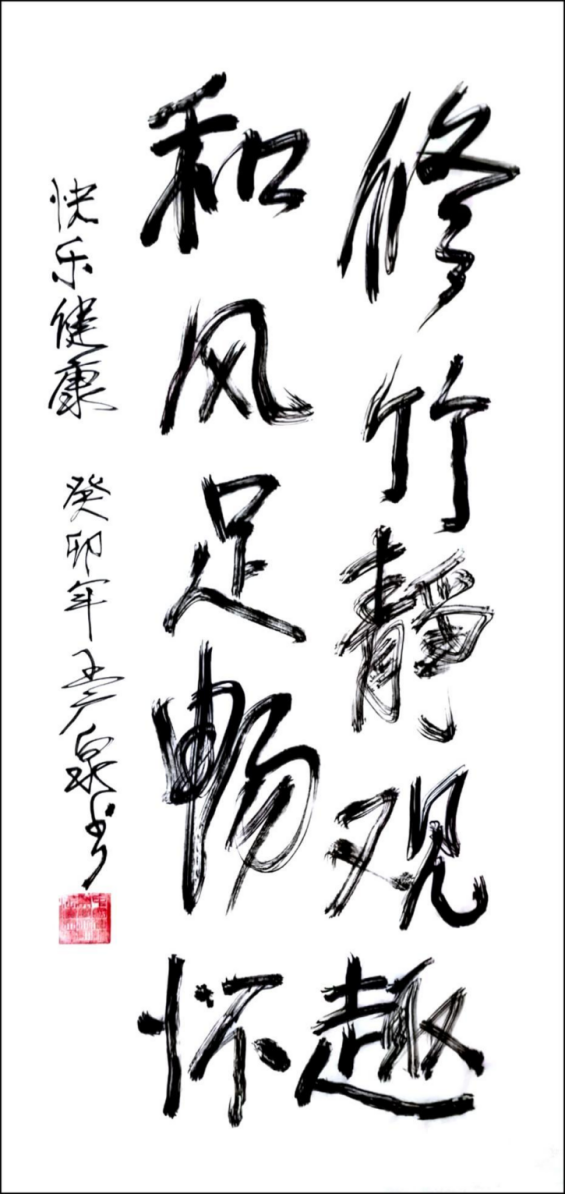 修竹静观趣
和风足畅怀
快乐健康 癸卯年王广泉书